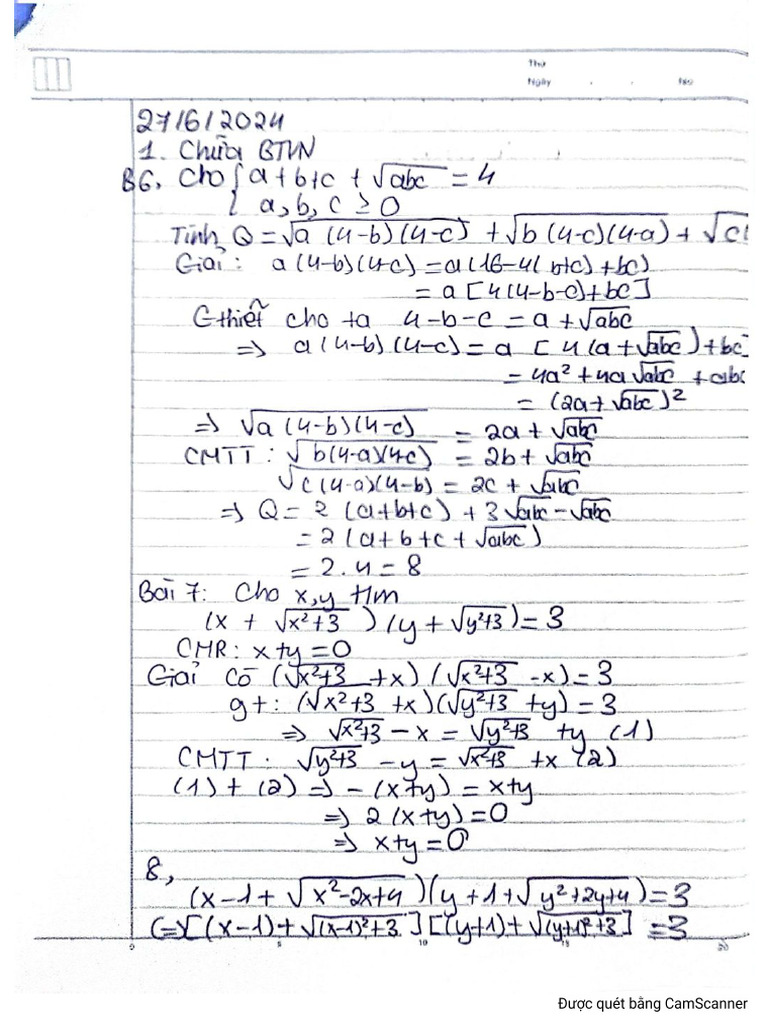 Thứ
Ngày . . No
27/6/2024
1. Chữa BTVN
B6, Cho { a + b + c + √abc = 4
{ a, b, c ≥ 0
Tính Q = √a (4-b)(4-c) + √b (4-c)(4-a) + √c(
Giải: a(4-b)(4-c) = a(16-4(b+c)+bc)
= a[4(4-b-c)+bc]
Gthiết cho ta 4-b-c = a+√abc
=> a(4-b)(4-c) = a [4(a+√abc)+bc]
= 4a² + 4a√abc + abc
= (2a+√abc)²
=> √a(4-b)(4-c) = 2a+√abc
CMTT: √b(4-a)(4-c) = 2b+√abc
√c(4-a)(4-b) = 2c+√abc
=> Q = 2 (a+b+c) + 3√abc - √abc
= 2(a+b+c+√abc)
= 2.4 = 8
Bài 7: Cho x,y t/m
(x + √x²+3 )(y+√y²+3) = 3
CMR: x+y=0
Giải Có (√x²+3 +x)(√x²+3 -x)=3
gt: (√x²+3 +x)(√y²+3 +y) = 3
=> √x²+3 - x = √y²+3 +y (1)
CMTT: √y²+3 - y = √x²+3 +x (2)
(1) + (2) => -(x+y) = x+y
=> 2(x+y)=0
=> x+y=0
8,
(x-1+√x²-2x+4)(y+1+√y²+2y+4)=3
(=)[(x-1)+√(x-1)²+3][(y+1)+√(y+1)²+3] =3
0 5 10 15 20
Được quét bằng CamScanner